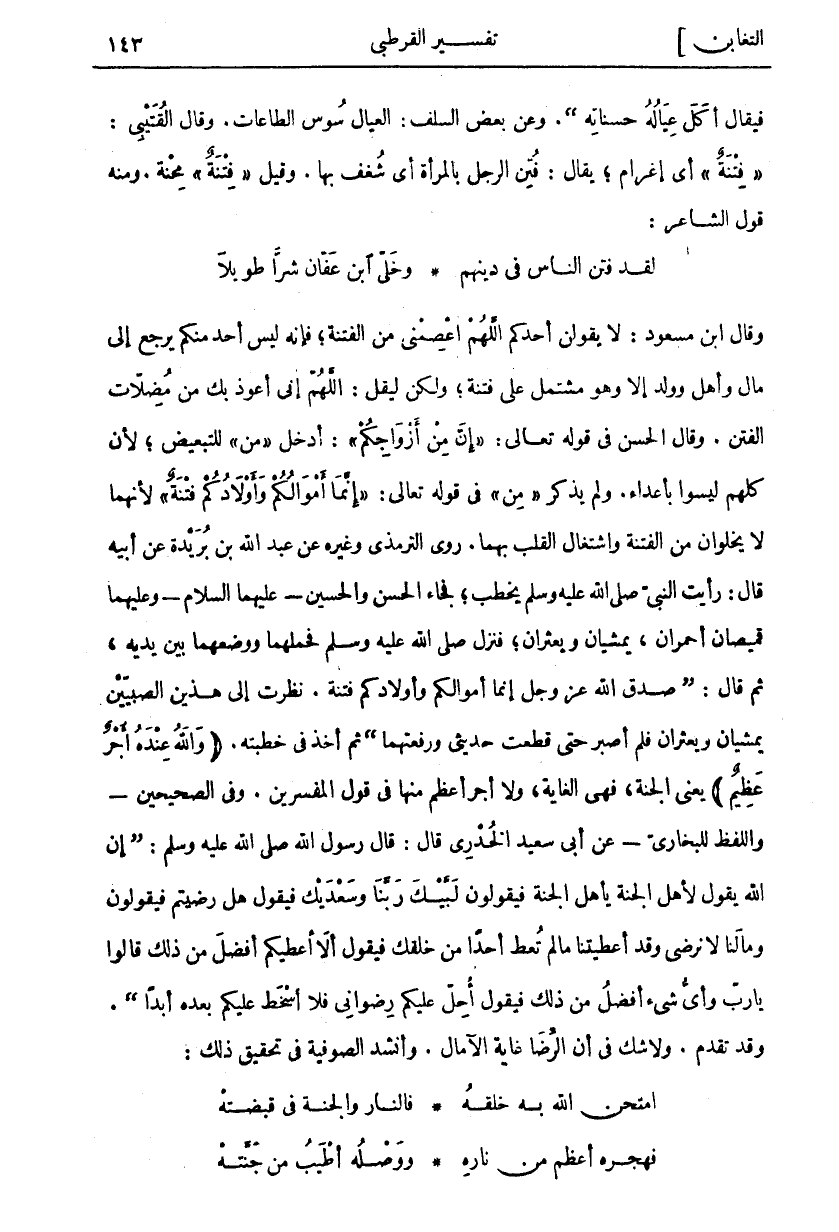 التغابن ] تفسير القرطبى ١٤٣
فيقال أكَلَ عِيَالُهُ حسناتِه “. وعن بعض السلف: العيال سُوس الطاعات. وقال القُتَيْبِى :
« فِتْنَةٌ » أى إغرام ؛ يقال : فُتِن الرجل بالمرأة أى شُغف بها . وقيل « فِتْنَةٌ » مِحْنة . ومنه
قول الشاعر :
لقد فتن الناس فى دينهم * وخَلّى ٱبن عَفّان شرًّا طويلاً
وقال ابن مسعود : لا يقولن أحدكم اللَّهُمْ اعْصِمْنى من الفتنة؛ فإنه ليس أحد منكم يرجع إلى
مال وأهل وولد إلا وهو مشتمل على فتنة ؛ ولكن ليقل : اللَّهُمّ إنى أعوذ بك من مُضِلّات
الفتن . وقال الحسن فى قوله تعالى: «إِنَّ مِنْ أَزْوَاجِكُمْ» : أدخل «من» للتبعيض ؛ لأن
كلهم ليسوا بأعداء. ولم يذكر « مِن » فى قوله تعالى: «إِنَّمَا أَمْوَالُكُمْ وَأَوْلَادُكُمْ فِتْنَةٌ» لأنهما
لا يخلوان من الفتنة واشتغال القلب بهما. روى الترمذى وغيره عن عبد الله بن بُرَيْدة عن أبيه
قال: رأيت النبىّ صلى الله عليه وسلم يخطب ؛ فجاء الحسن والحسين – عليهما السلام – وعليهما
قميصان أحمران ، يمشيان ويعثران؛ فنزل صلى الله عليه وسلم فحملهما ووضعهما بين يديه ،
ثم قال : ” صدق الله عز وجل إنما أموالكم وأولادكم فتنة . نظرت إلى هذين الصبيّيْن
يمشيان ويعثران فلم أصبر حتى قطعت حديثى ورفعتهما “ ثم أخذ فى خطبته. ( وَاللَّهُ عِنْدَهُ أَجْرٌ
عَظِيمٌ ) يعنى الجنة، فهى الغاية، ولا أجر أعظم منها فى قول المفسرين . وفى الصحيحين –
واللفظ للبخارىّ – عن أبى سعيد الخُدْرِى قال : قال رسول الله صلى الله عليه وسلم : ” إن
الله يقول لأهل الجنة يأهل الجنة فيقولون لَبَّيْكَ رَبَّنَا وسَعْدَيْك فيقول هل رضيتم فيقولون
ومالَنا لا نرضى وقد أعطيتنا مالم تُعط أحدًا من خلقك فيقول ألَا أعطيكم أفضلَ من ذلك قالوا
يا ربّ وأىُّ شىء أفضلُ من ذلك فيقول أُحِلّ عليكم رِضوانى فلا أسْخَط عليكم بعده أبدًا “ .
وقد تقدم . ولا شك فى أن الرِّضَا غاية الآمال . وأنشد الصوفية فى تحقيق ذلك :
امتحن الله به خلقهُ * فالنار والجنة فى قبضتهْ
فهجره أعظم من نارِهِ * ووَصْلُه أطْيَبُ من جَنّتهْ